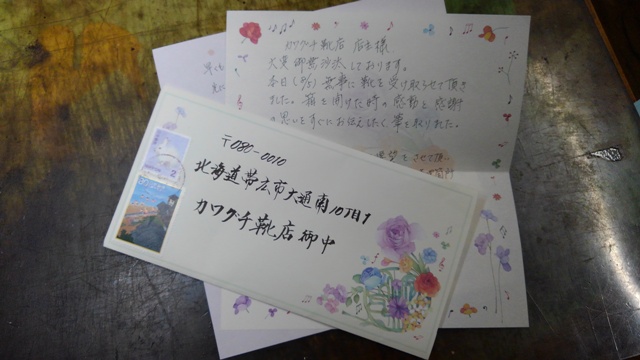 カワグチ靴店 店主様
大変御無沙汰しております。
本日(3/5) 無事に靴を受け取らせて頂き
ました。箱を開けた時の感動と感謝
の思いをすぐにお伝えしたく筆を取りました。
要望をさせて頂
〒080-0010
北海道帯広市大通南10丁目9
カワグチ靴店御中
2